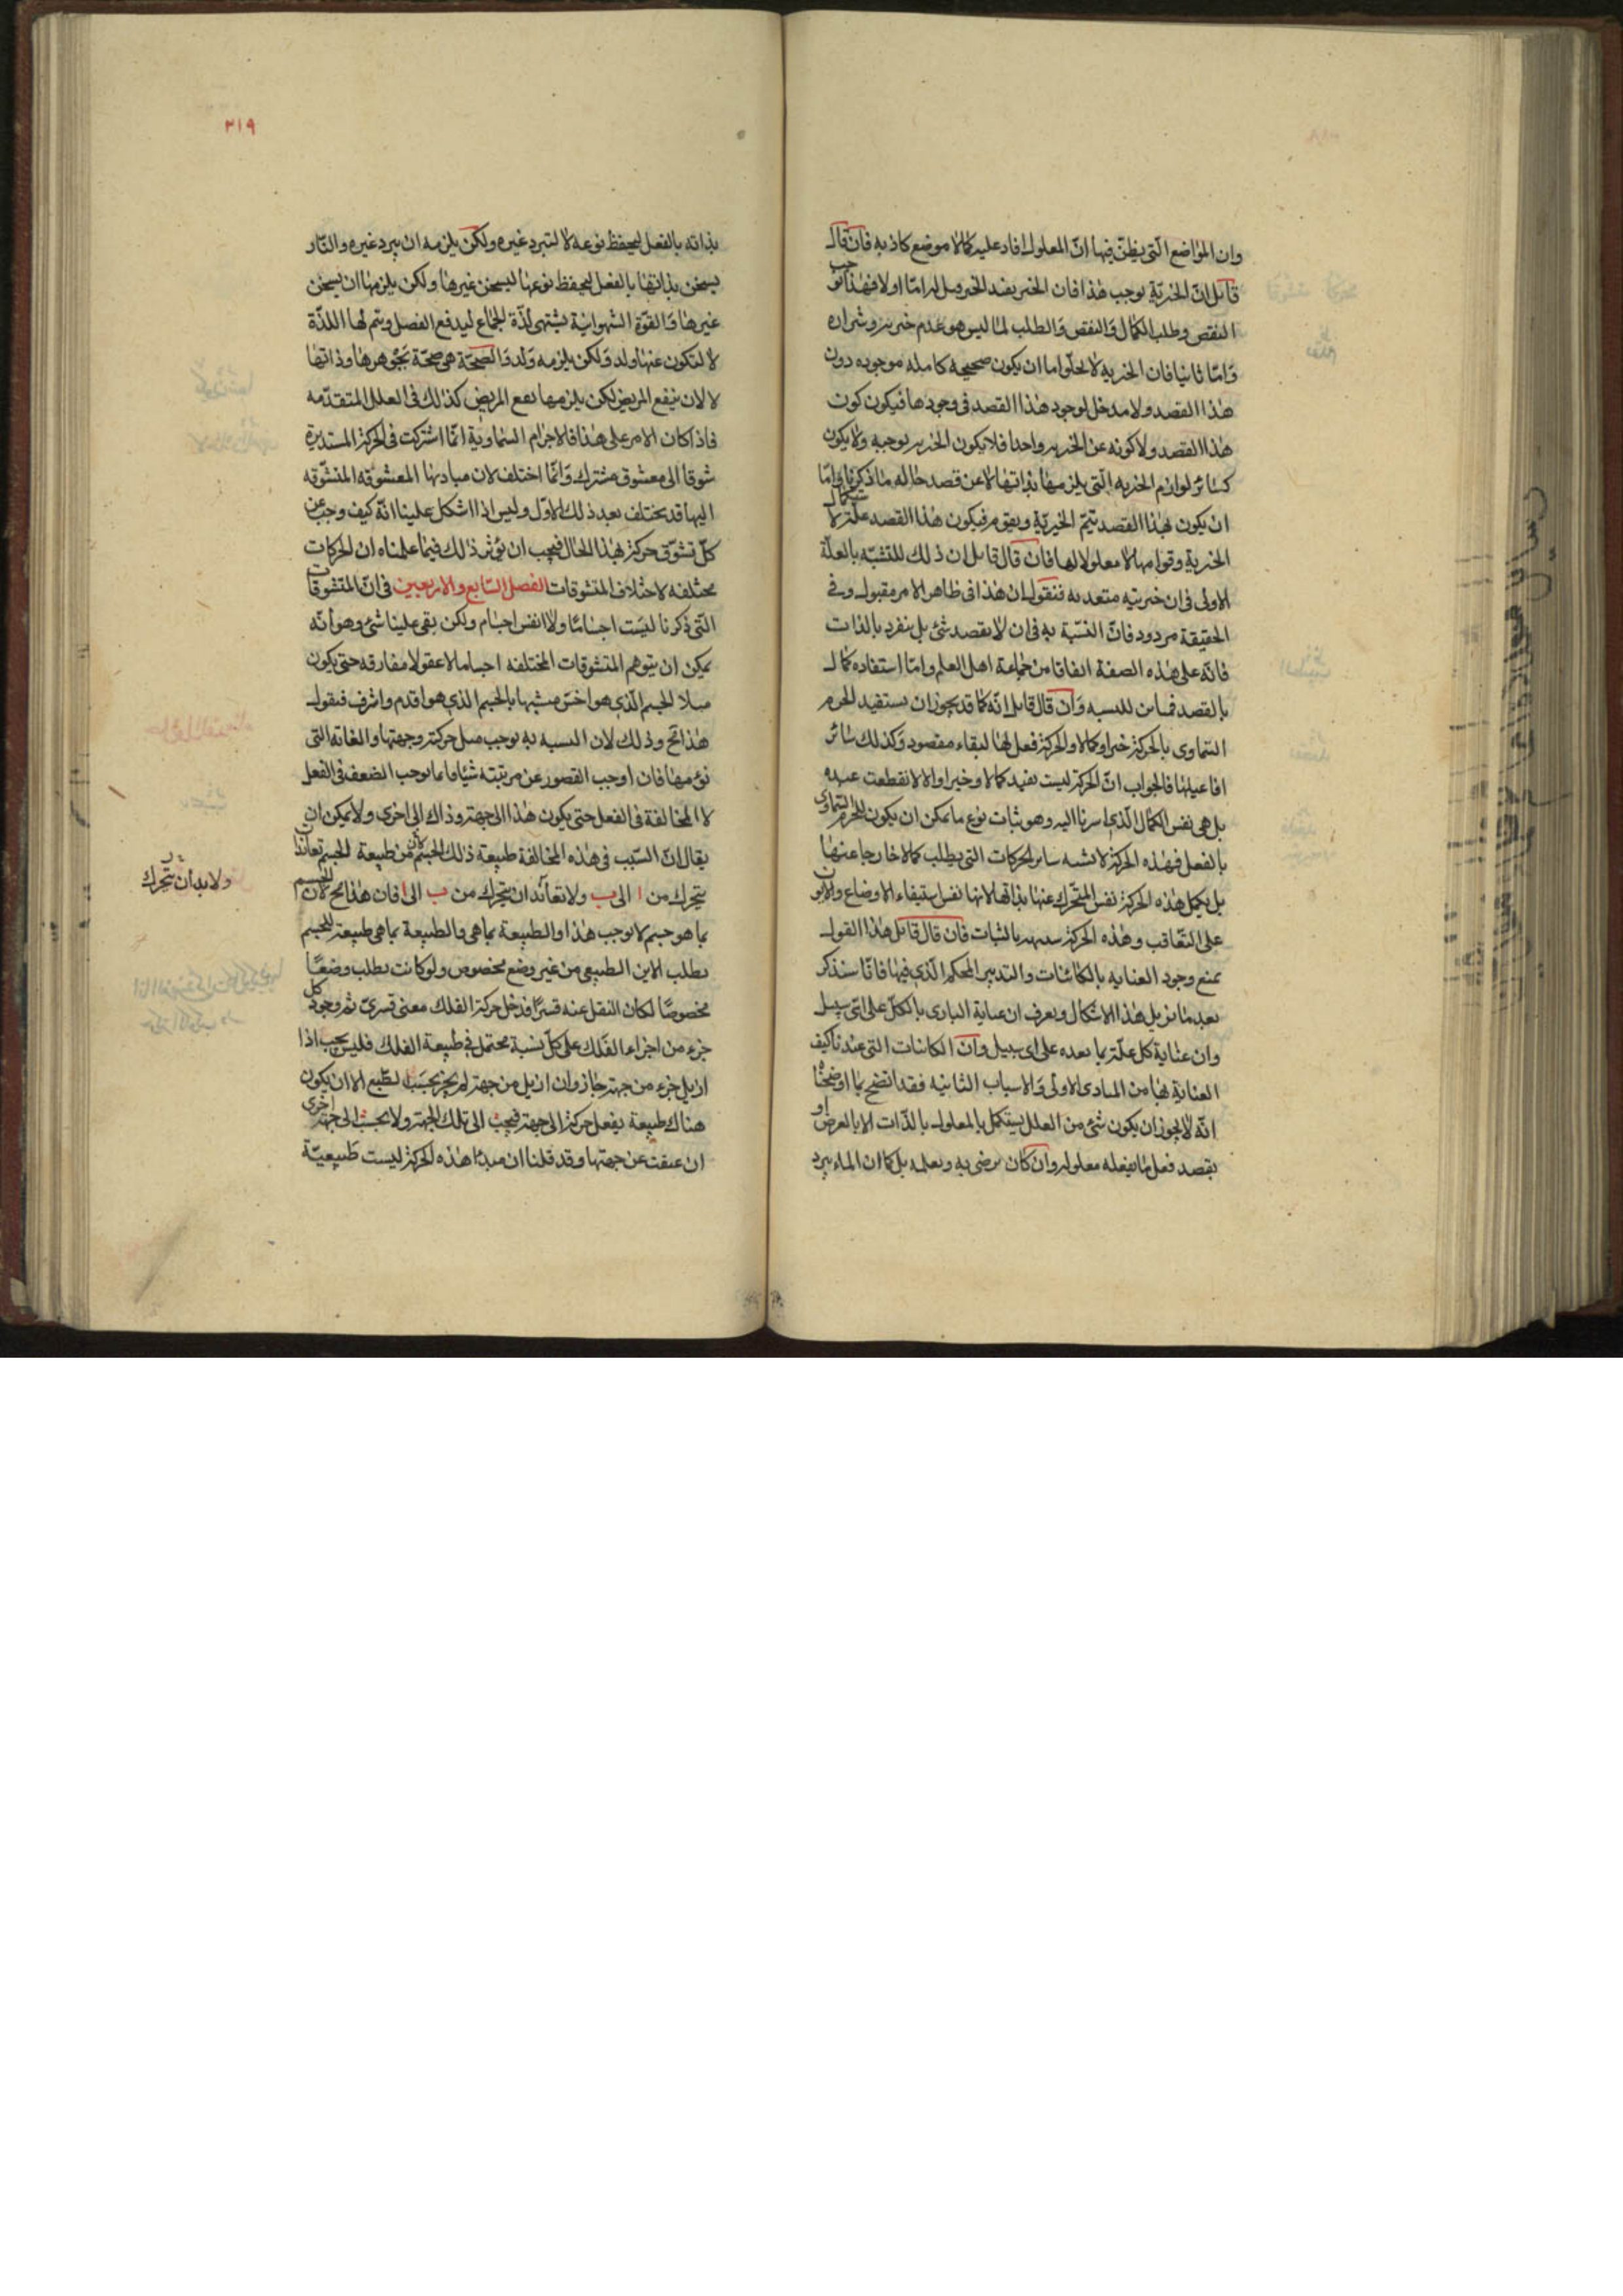 وان المواضع الّتى يظنّ فيها انّ المعلول افاد عليه كمالا مواضع كاذبه فان قال
قائل انّ الخيريّة توجب هذا فان الخير يفيد الخير قيل له امّا اولا فهذا توجب
النقص وطلب الكمال والنقص والطلب لما ليس هو عدم خيريه وشراره
وامّا ثانيا فان الخيريه لا يخلوا اما ان يكون صحيحه كامله موجوده دون
هذا القصد ولا مدخل لوجود هذا القصد فى وجودها فيكون كون
هذا القصد ولا كونه عن الخيريه واحدا فلا يكون الخيريه توجبه ولا يكون
كسائر لوازم الخيريه الّتى يلزمها بذاتها لا عن قصد حاله ما ذكرنا وامّا
ان يكون بهذا القصد تتمّ الخيريّة ويقوم فيكون هذا القصد علّة لاستكمال
الخيرية وقوامها لا معلولا لها فان قال قايل ان ذلك للتشبّه بالعلّة
الاولى فى ان خيريته متعديه فنقول ان هذا فى ظاهر الامر مقبول وفى
الحقيقة مردود فانّ التشبّه به فى ان لا يقصد شئ بل ينفرد بالذات
فانّه على هذه الصفة اتفاقا من جماعة اهل العلم وامّا استفاده كمال
بالقصد فمباين للتشبه وان قال قايل انّه كما قد يجوز ان يستفيد الجرم
السّماوى بالحركة خيرا وكمالا والحركة فعل لها لبقاء مقصود وكذلك سائر
افاعيلها فالجواب انّ الحركة ليست تفيد كمالا وخيرا والا لانقطعت عنده
بل هى نفس الكمال الّذى اشرنا اليه وهو ثبات نوع ما يمكن ان يكون للجرم السّماوى
بالفعل فهذه الحركة لا تشبه ساير الحركات التى يطلب كمالا خارجا عنها
بل يكمل هذه الحركة نفس المتحّرك عنها بذاتها لانها نفس استبقاء الاوضاع والايون
على التّعاقب وهذه الحركة شبيهه بالثبات فان قال قائل هذا القول
يمنع وجود العنايه بالكائنات والتدبير المحكم الّذى فيها فانّا سنذكر
بعد ما نزيل هذا الاشكال ونعرف ان عناية البارى بالكلّ على اىّ سبيل
وان عناية كل علّة بما بعده على اى سبيل وان الكائنات التى عندنا كيف
العناية بها من المبادى الاولى والاسباب الثانيه فقد اتضح بما اوضحناه
انّه لا يجوز ان يكون شئ من العلل يستكمل بالمعلول بالذّات الا بالعرض او
يقصد فعلا ما يفعله معلوله وان كان يرضى به ويعلمه بل كما ان الماء يبرد
٣١٩
بذاته بالفعل ليحفظ نوعه لا ليتبرد غيره ولكن يلزمه ان يبرد غيره والنّار
يسخن بذاتها بالفعل ليحفظ نوعها ليسخن غيرها ولكن يلزمها ان يسخن
غيرها والقوّة الشهوانيّة يشتهى لذّة الجماع ليدفع الفضل ويتم لها اللذّة
لا لتكون عنها ولد ولكن يلزمه ولد والصحّة هى صحّة بجوهرها وذاتها
لا لان ينفع المريض لكن يلزمها نفع المريض كذلك فى العلل المتقدّمه
فاذا كان الامر على هذا فالاجرام السّماويّة انّما اشتركت فى الحركة المستديرة
شوقا الى معشوق مشترك وانّما اختلف لان مباديها المعشوقه المتشوّقه
اليها قد يختلف بعد ذلك الاوّل وليس اذا اشكل علينا انّه كيف وجب عن
كلّ تشوّق حركة بهذا الحال فيجب ان يؤثر ذلك فيما علمناه ان الحركات
مختلفه لاختلاف المتشوقات الفصل السّابع والاربعين فى انّ المتشوقات
الّتى ذكرنا ليست اجساما ولا انفس اجسام ولكن بقى علينا شئ وهو انّه
يمكن ان يتوهم المتشوقات المختلفه اجساما لا عقولا مفارقه حتى يكون
مثلا الجسم الّذى هو اخسّ متشبها بالجسم الذى هو اقدم واشرف فنقول
هذا مح وذلك لان التشبه به توجب مثل حركته وجهتها والغاية التى
تؤمها فان اوجب القصور عن مرتبته شيئا فانما توجب الضعف فى الفعل
لا المخالفة فى الفعل حتى يكون هذا الى جهة وذاك الى اخرى ولا يمكن ان
يقال انّ السّبب فى هذه المخالفة طبيعة ذلك الجسم كأن من طبيعة الجسم تعاندا ان
يتحرك من ا الى ب ولا تعاند ان يتحرك من ب الى ا فان هذا مح لان الجسم
ولا بد ان يتحّرك
بما هو جسم لا توجب هذا والطبيعة بما هى والطبيعة بما هى طبيعة للجسم
يطلب الاين الطبيعى من غير وضع مخصوص ولو كانت يطلب وضعا
مخصوصا لكان النقل عنه قسرا فدخل حركة الفلك معنى قسرىّ ثم وجود كل
جزء من اجزاء الفلك على كلّ نسبة محتمل فى طبيعة الفلك فليس يجب اذا
ازيل جزء من جهة جاز وان ازيل من جهة لم يجز بحسب الطّبع الا ان يكون
هناك طبيعة يفعل حركة الى جهة فيجب الى تلك الجهة ولا يجب الى جهة اخرى
ان عيقت عن جهتها وقد قلنا ان مبدأ هذه الحركة ليست طبيعيّة